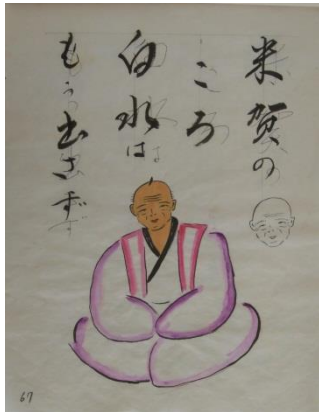 米賀の
ころ
白水は
もう出さず
67